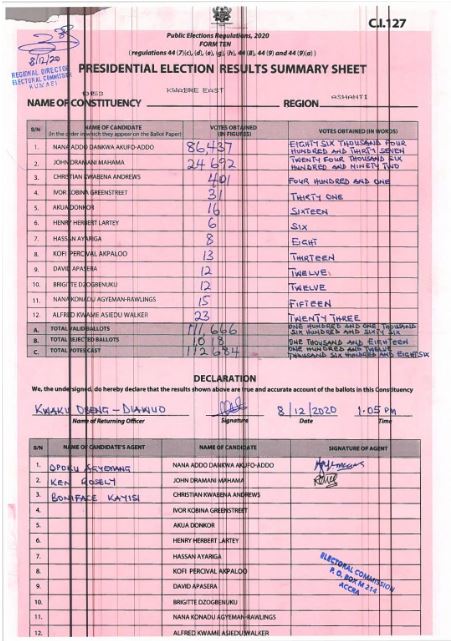 C.I.127
Public Elections Regulations, 2020
FORM TEN
(regulations 44 (7)(c), (d), (e), (g), (h), 44(8), 44 (9) and 44(9)(a))
8/12/20
REGIONAL DIRECTOR
ELECTORAL COMMISSION
KUMASI
PRESIDENTIAL ELECTION RESULTS SUMMARY SHEET
NAME OF CONSTITUENCY KWABRE EAST REGION ASHANTI
S/N NAME OF CANDIDATE (In the order in which they appear on the Ballot Paper) VOTES OBTAINED (IN FIGURES) VOTES OBTAINED (IN WORDS)
1. NANA ADDO DANKWA AKUFO-ADDO 86,437 EIGHTY SIX THOUSAND FOUR HUNDRED AND THIRTY SEVEN
2. JOHN DRAMANI MAHAMA 24 692 TWENTY FOUR THOUSAND SIX HUNDRED AND NINETY TWO
3. CHRISTIAN KWABENA ANDREWS 401 FOUR HUNDRED AND ONE
4. IVOR KOBINA GREENSTREET 31 THIRTY ONE
5. AKUA DONKOR 16 SIXTEEN
6. HENRY HERBERT LARTEY 6 SIX
7. HASSAN AYARIGA 8 EIGHT
8. KOFI PERCIVAL AKPALOO 13 THIRTEEN
9. DAVID APASERA 12 TWELVE
10. BRIGITTE DZOGBENUKU 12 TWELVE
11. NANA KONADU AGYEMAN-RAWLINGS 15 FIFTEEN
12. ALFRED KWAME ASIEDU WALKER 23 TWENTY THREE
A. TOTAL VALID BALLOTS 111,666 ONE HUNDRED AND ONE THOUSAND SIX HUNDRED AND SIXTY SIX
B. TOTAL REJECTED BALLOTS 1018 ONE THOUSAND AND EIGHTEEN
C. TOTAL VOTES CAST 112684 ONE HUNDRED AND TWELVE THOUSAND SIX HUNDRED AND EIGHTSIX
DECLARATION
We, the undersigned, do hereby declare that the results shown above are true and accurate account of the ballots in this Constituency
KWAKU OBENG-DIAWUO 8/12/2020 1:05 PM
Name of Returning Officer Signature Date Time
S/N NAME OF CANDIDATE'S AGENT NAME OF CANDIDATE SIGNATURE OF AGENT
1. OPOKU AGYEMANG NANA ADDO DANKWA AKUFO-ADDO
2. KEN JOHN DRAMANI MAHAMA
3. BONIFACE KAYISI CHRISTIAN KWABENA ANDREWS
4. IVOR KOBINA GREENSTREET
5. AKUA DONKOR
6. HENRY HERBERT LARTEY
7. HASSAN AYARIGA
8. KOFI PERCIVAL AKPALOO
9. DAVID APASERA
10. BRIGITTE DZOGBENUKU
11. NANA KONADU AGYEMAN-RAWLINGS
12. ALFRED KWAME ASIEDU WALKER
ELECTORAL COMMISSION
P. O. BOX M 214
ACCRA